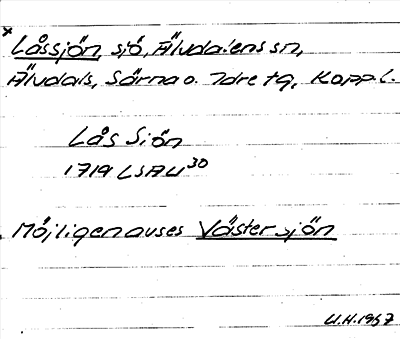 * Låssjön, sjö, Älvdalens sn,
Älvdals, Särna o. Idre tg, Kopp. l.
Lås Siön
1719 LSA U30
Möjligen avses Väster sjön
U.H. 1957